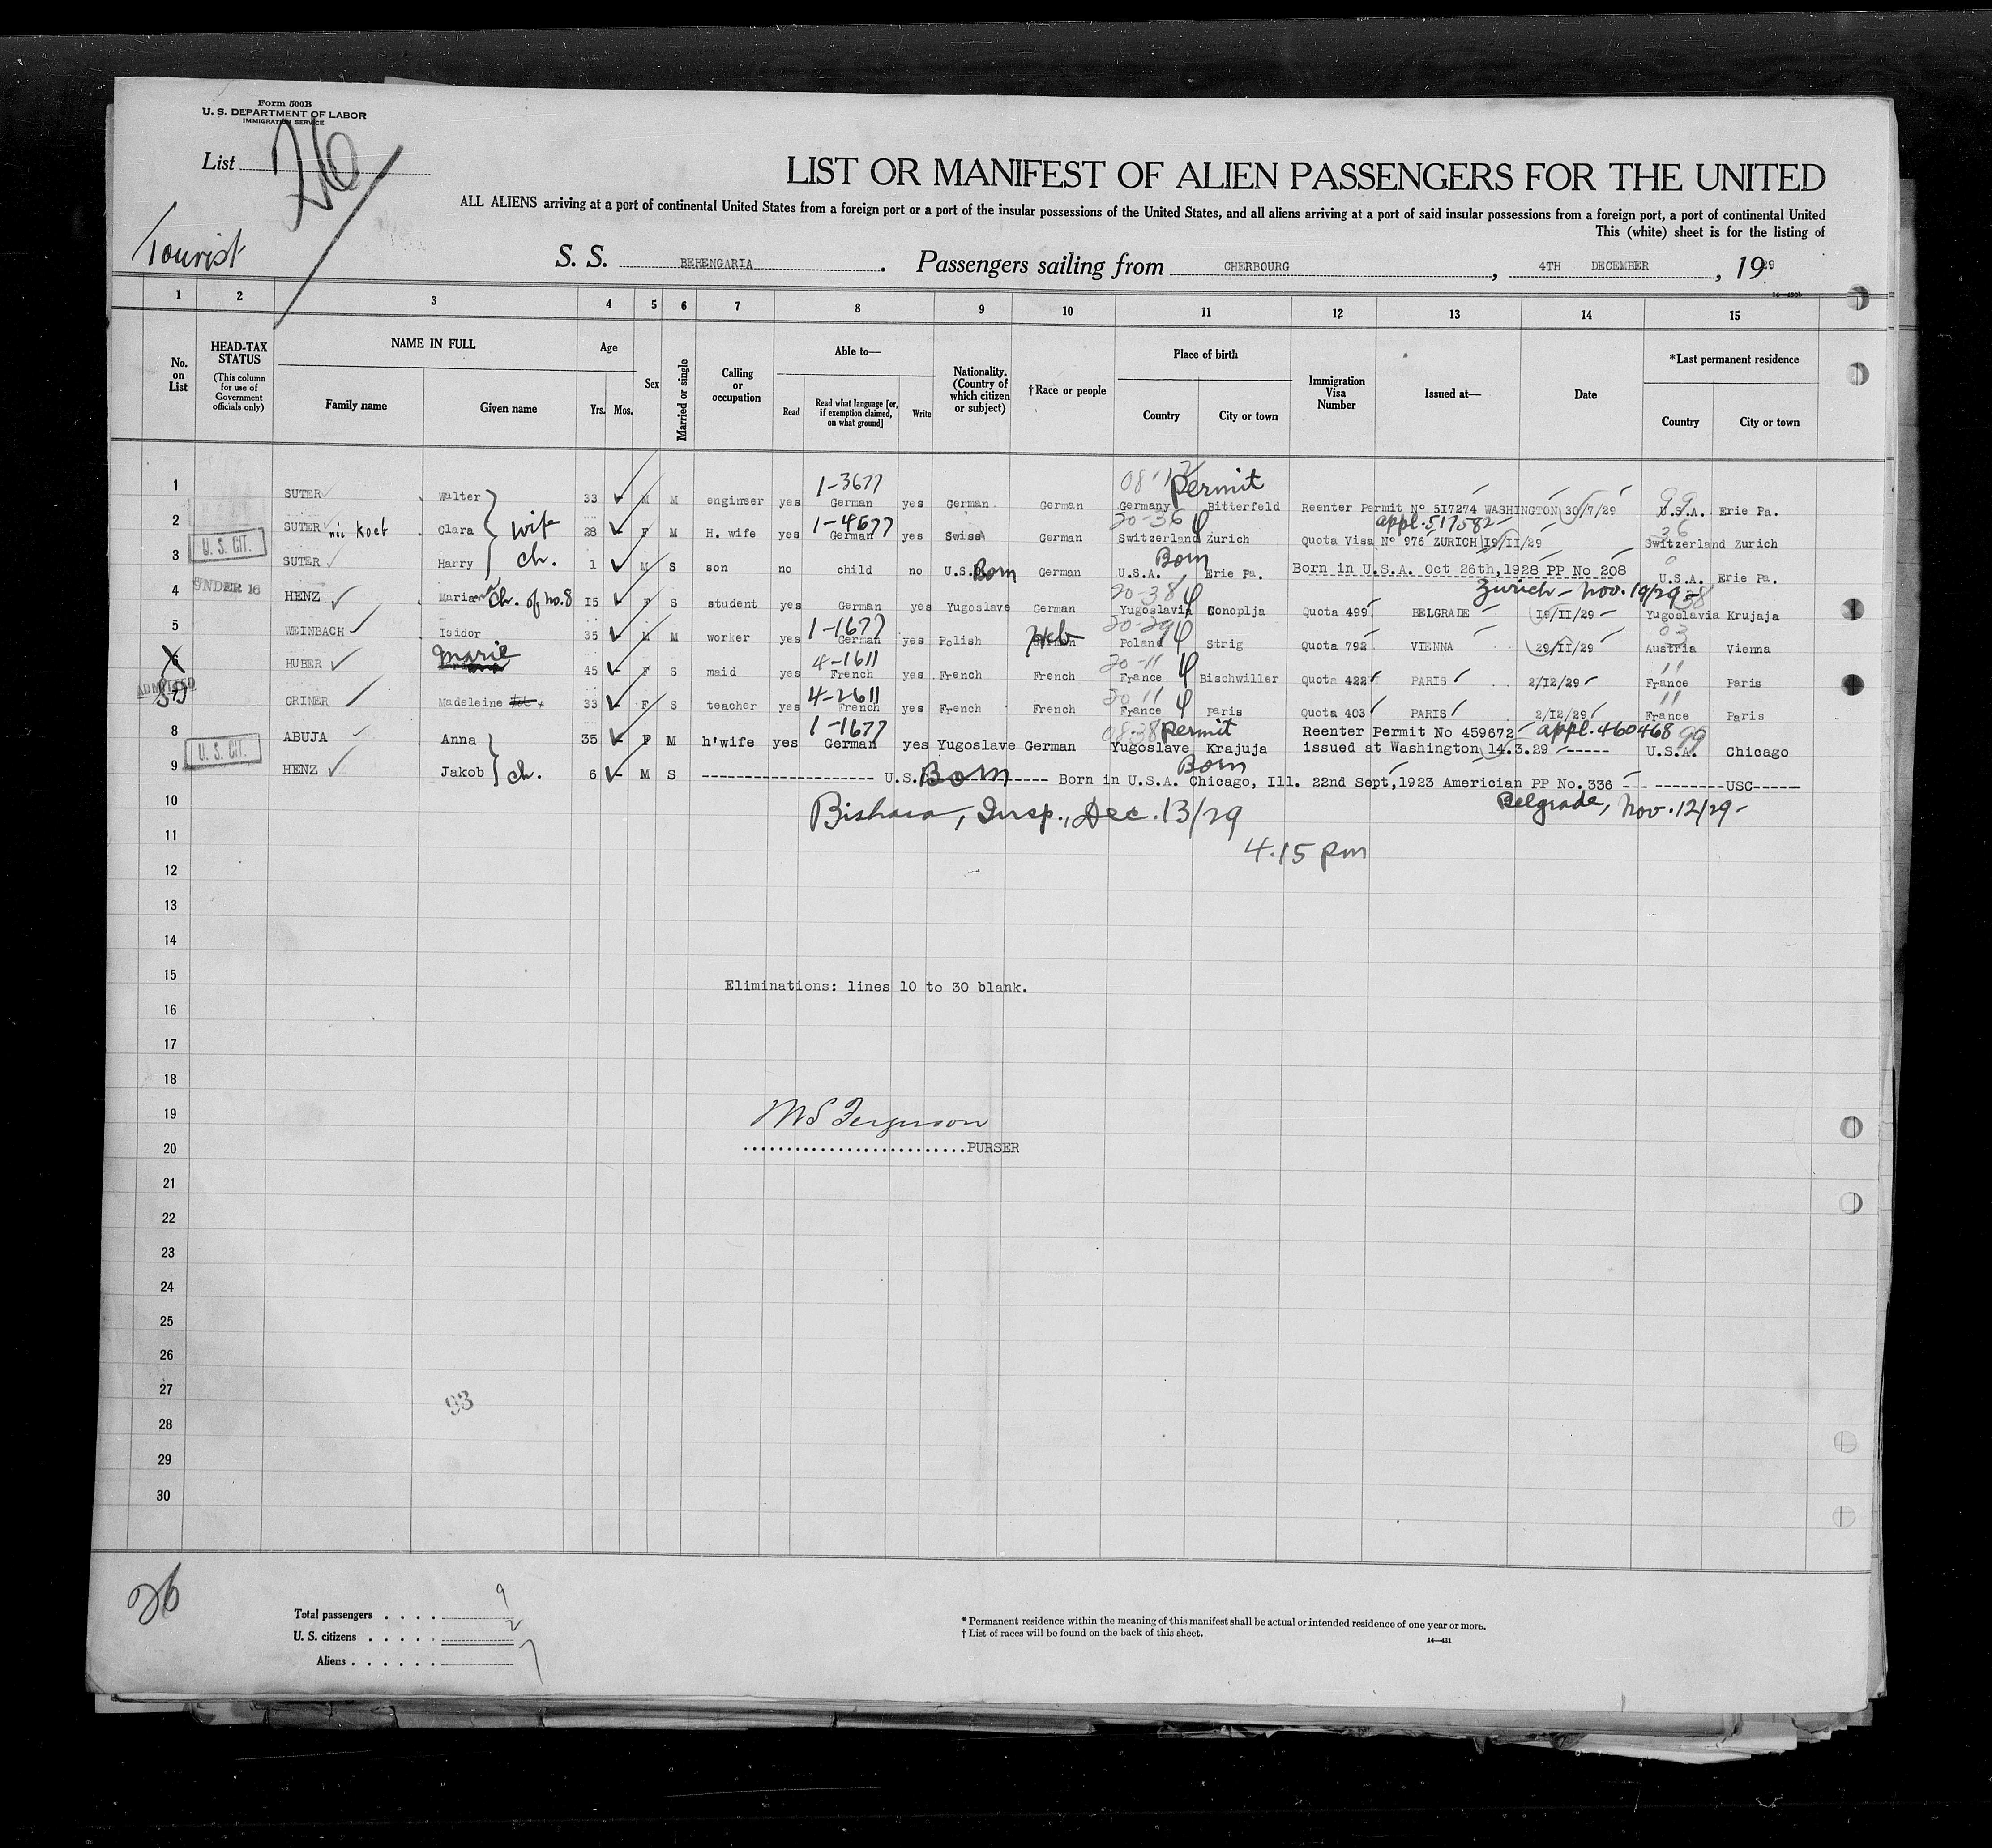 Form 500B
U. S. DEPARTMENT OF LABOR
IMMIGRATION SERVICE
List 26
LIST OR MANIFEST OF ALIEN PASSENGERS FOR THE UNITED
ALL ALIENS arriving at a port of continental United States from a foreign port or a port of the insular possessions of the United States, and all aliens arriving at a port of said insular possessions from a foreign port, a port of continental United
This (white) sheet is for the listing of
Tourist
S. S. BERENGARIA. Passengers sailing from CHERBOURG, 4TH DECEMBER, 1929
1 2 3 4 5 6 7 8 9 10 11 12 13 14 15
No. on List
HEAD-TAX STATUS
(This column for use of Government officials only)
NAME IN FULL
Family name Given name
Age
Yrs. Mos.
Sex
Married or single
Calling or occupation
Able to—
Read Read what language [or, if exemption claimed, on what ground] Write
Nationality. (Country of which citizen or subject)
†Race or people
Place of birth
Country City or town
Immigration Visa Number
Issued at—
Date
*Last permanent residence
Country City or town
1-3677 Permit
1 SUTER Walter 33 M M engineer yes German yes German German Germany Bitterfeld Reenter Permit No 517274 WASHINGTON 30/7/29 U.S.A. Erie Pa.
1-4677 20-36 appl. 517582 36
2 U. S. CIT. SUTER Clara wife 28 F M H. wife yes German yes Swiss German Switzerland Zurich Quota Visa No 976 ZURICH 19/11/29 Switzerland Zurich
Born
3 SUTER Harry ch. 1 M S son no child no U.S.A. Born German U.S.A. Erie Pa. Born in U.S.A. Oct 26th, 1928 PP No 208 U.S.A. Erie Pa.
UNDER 16 20-38 Zurich - Nov. 19/29 - 38
4 HENZ Ch. of no. 8 15 F S student yes German yes Yugoslave German Yugoslavia Conoplja Quota 499 BELGRADE 19/11/29 Yugoslavia Krujaja
1-1677 20-29 03
5 WEINBACH Isidor 35 M M worker yes German yes Polish Heb Poland Strig Quota 792 VIENNA 29/11/29 Austria Vienna
Marie 4-1611 20-11 11
HUBER 45 F S maid yes French yes French French France Bischwiller Quota 422 PARIS 2/12/29 France Paris
ADMITTED 4-2611 20 11 11
GRINER Madeleine 33 F S teacher yes French yes French French France Paris Quota 403 PARIS 2/12/29 France Paris
1-1677 08-38 Permit Reenter Permit No 459672 appl. 460468 99
8 U. S. CIT. ABUJA Anna 35 F M h'wife yes German yes Yugoslave German Yugoslave Krajuja issued at Washington 14.3.29 ----- U.S.A. Chicago
Born
9 HENZ Jakob ch. 6 M S -------------------- U.S. Born ---------- Born in U.S.A. Chicago, Ill. 22nd Sept, 1923 Americian PP No. 336 --- --------USC-----
10 Bishara, Insp., Dec. 13/29 Belgrade, Nov. 12/29 -
11 4.15 pm
12
13
14
15 Eliminations: lines 10 to 30 blank.
16
17
18
19 Ferguson
20 ..........................PURSER
21
22
23
24
25
26
27 93
28
29
30
26
Total passengers . . . . 9
U. S. citizens . . . . . 2
Aliens . . . . . . 7
* Permanent residence within the meaning of this manifest shall be actual or intended residence of one year or more.
† List of races will be found on the back of this sheet.
14—431